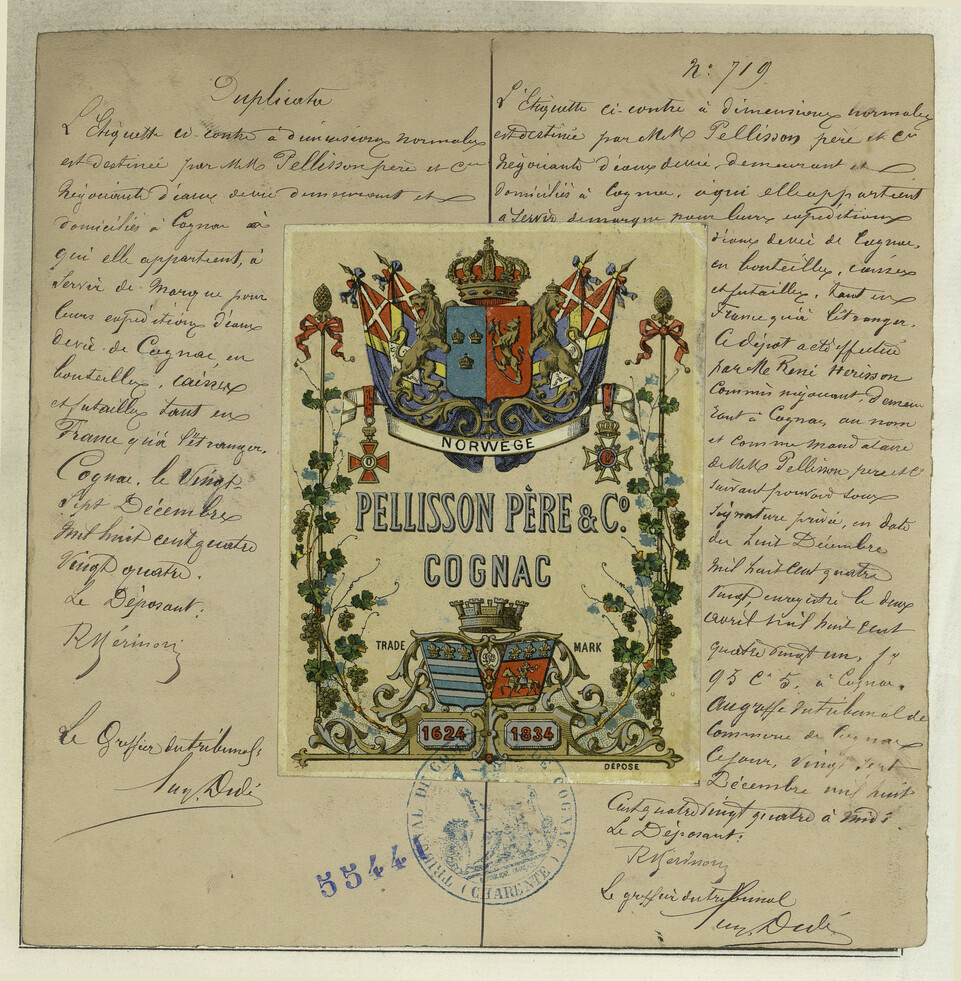 Duplicata
L'Etiquette ci-contre à dimensions normales
est destinée par MM. Pellisson père et Cie
Négociants d'eaux de vie demeurant et
domiciliés à Cognac à
qui elle appartient, à
Servir de Marque pour
leurs expéditions d'eaux
de vie de Cognac, en
bouteilles, caisses
et futailles tant en
France qu'à l'étranger.
Cognac, le Vingt-
Sept Décembre
Mil huit cent quatre
Vingt quatre.
Le Déposant:
R Hérisson
Le Greffier du tribunal:
N: 719
L'Etiquette ci-contre à dimensions normales
est destinée par MM. Pellisson père et Cie
Négociants d'eaux de vie, demeurant et
domiciliés à Cognac, à qui elle appartient
à Servir de marque pour leurs expéditions
d'eaux de vie de Cognac,
en bouteilles, caisses
et futailles, tant en
France qu'à l'étranger.
Ce dépôt a été effectué
par Mr René Hérisson
Commis négociant, demeu
rant à Cognac, au nom
et comme Mandataire
de MM. Pellisson père et Cie
suivant pouvoir sous
Signature privée, en date
du huit Décembre
Mil huit cent quatre
vingt, enregistré le deux
avril mil huit cent
quatre vingt un, fo
95 Ce 5. à Cognac.
Au greffe du tribunal de
Commerce de Cognac
Ce jour, vingt sept
Décembre mil huit
Cent quatre vingt quatre à midi.
Le Déposant:
R Hérisson
Le greffier du tribunal
NORWÈGE
PELLISSON PÈRE & Co.
COGNAC
TRADE MARK
1624 1834
DÉPOSÉ
TRIBUNAL DE COMMERCE DE COGNAC
(CHARENTE)
5544